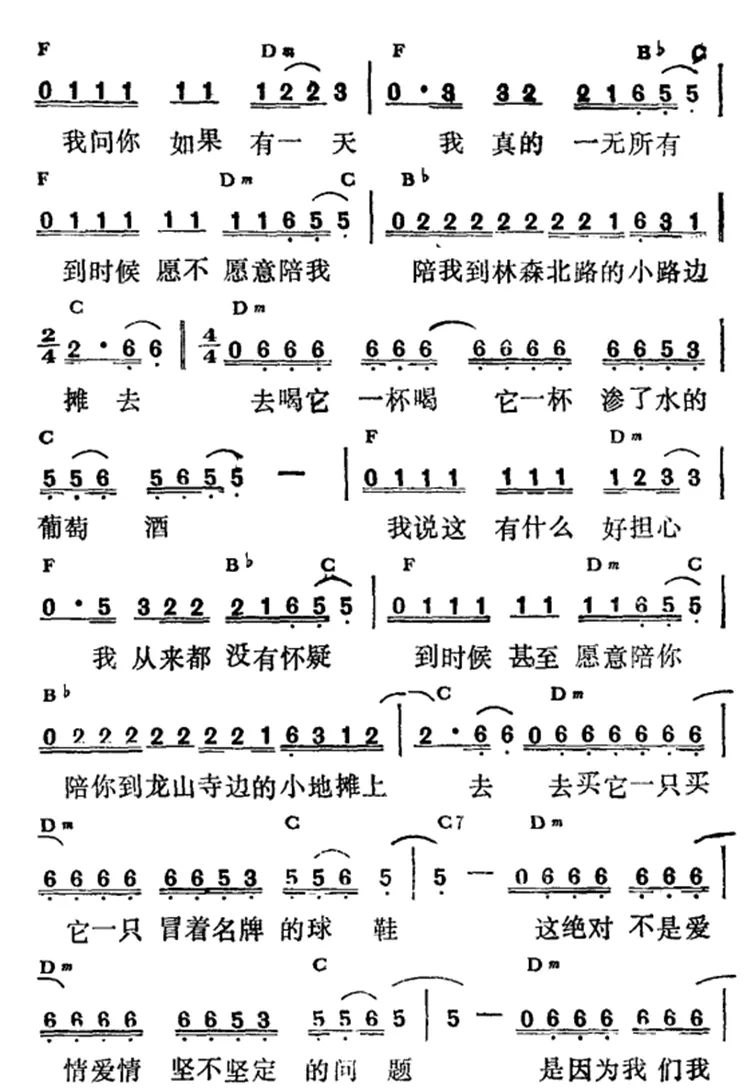 F Dm F B♭ C
0111 11 1223 | 0·3 32 21655 |
我问你 如果 有一 天 我 真的 一无所有
F Dm C B♭
0111 11 11655 | 0222 222 2221 631
到时候 愿不 愿意陪我 陪我到林森北路的小路边
C Dm
2/4 2·66 || 4/4 0666 666 6666 6653
摊 去 去喝它 一杯喝 它一杯 渗了水的
C F Dm
556 56555 — | 0111 111 12333 |
葡萄 酒 我说这 有什么 好担心
F B♭ C F Dm C
0·5 322 21655 | 0111 11 11655 |
我 从来都 没有怀疑 到时候 甚至 愿意陪你
B♭ C Dm
0222 222 2221 6312 | 2·66 0666 666 |
陪你到龙山寺边的小地摊上 去 去买它一只买
Dm C C7 Dm
6666 6653 556 5 | 5 — 0666 666 |
它一只 冒着名牌 的球 鞋 这绝对 不是爱
Dm C Dm
6666 6653 5565 | 5 — 0666 666 |
情爱情 坚不坚定 的问 题 是因为我 们我